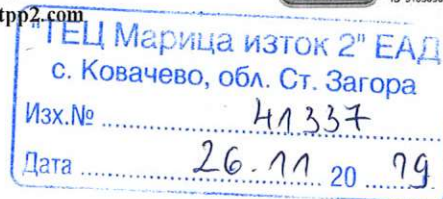 tpp2.com
"ТЕЦ Марица изток 2" ЕАД
с. Ковачево, обл. Ст. Загора
Изх.№ 41337
Дата 26.11 2019